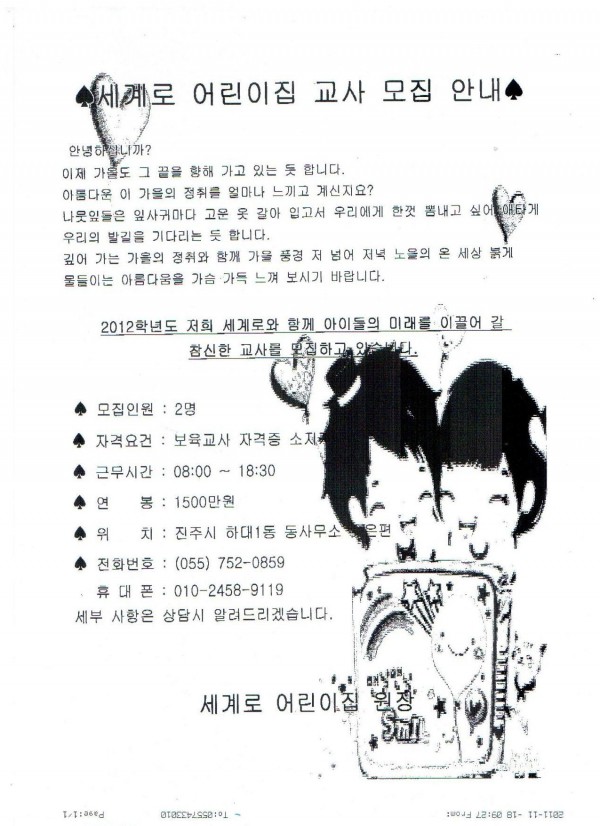 ♠세계로 어린이집 교사 모집 안내♠
안녕하십니까?
이제 가을도 그 끝을 향해 가고 있는 듯 합니다.
아름다운 이 가을의 정취를 얼마나 느끼고 계신지요?
나뭇잎들은 잎사귀마다 고운 옷 갈아 입고서 우리에게 한껏 뽐내고 싶어 애타게
우리의 발길을 기다리는 듯 합니다.
깊어 가는 가을의 정취와 함께 가을 풍경 저 넘어 저녁 노을의 온 세상 붉게
물들이는 아름다움을 가슴 가득 느껴 보시기 바랍니다.
2012학년도 저희 세계로와 함께 아이들의 미래를 이끌어 갈
참신한 교사를 모집하고 있습니다.
♠ 모집인원 : 2명
♠ 자격요건 : 보육교사 자격증
♠ 근무시간 : 08:00 ~ 18:30
♠ 연 봉 : 1500만원
♠ 위 치 : 진주시 하대1동 동사무소
♠ 전화번호 : (055) 752-0859
휴 대 폰 : 010-2458-9119
세부 사항은 상담시 알려드리겠습니다.
세계로 어린이집 원장
Smil
2011-11-18 09:27 From: To:0557433010 Page:1/1